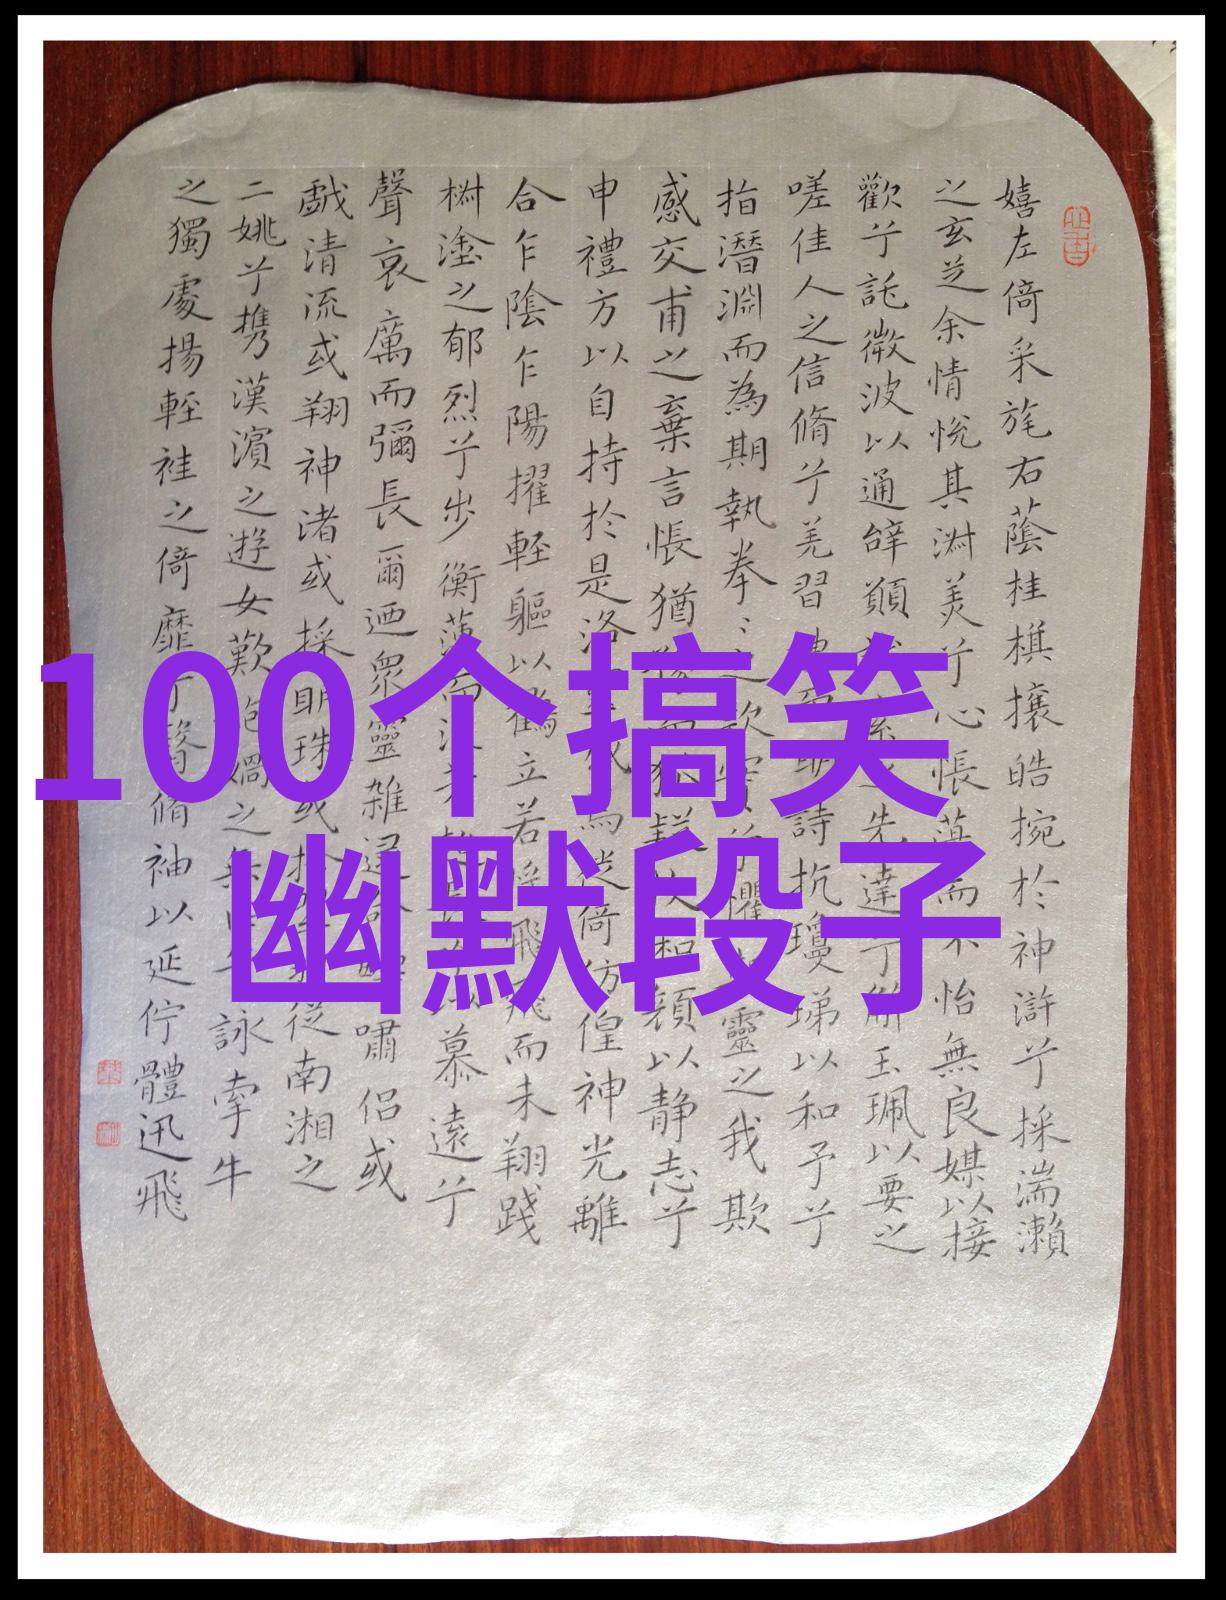 100个搞笑
幽默段子
嬉左倚采旄右蔭桂棋攘皓捥於神滸兮採湍瀨
之玄芝余情悅其淑美兮心悵蕩而不怡無良媒以接
歡兮託微波以通辭願先達兮解玉珮以要之
嗟佳人之信脩兮羌習詩抗瓊珶以和予兮
指潛淵而為期執拳〻之款實兮懼靈之我欺
感交甫之棄言悵猶和顏以静志兮
申禮方以自持於是洛焉徙倚仿偟神光離
合乍陰乍陽擢輕軀以鶴立若將飛而未翔踐
椒塗之郁烈兮步衡薄而流以慕遠兮
聲哀厲而彌長爾迺眾靈雜遝嘯侶或
戲清流或翔神渚或採明珠或從南湘之
二姚兮携漢濱之遊女歎媧之無詠牽牛
之獨處揚輕袿之倚靡兮翳脩袖以延佇體迅飛